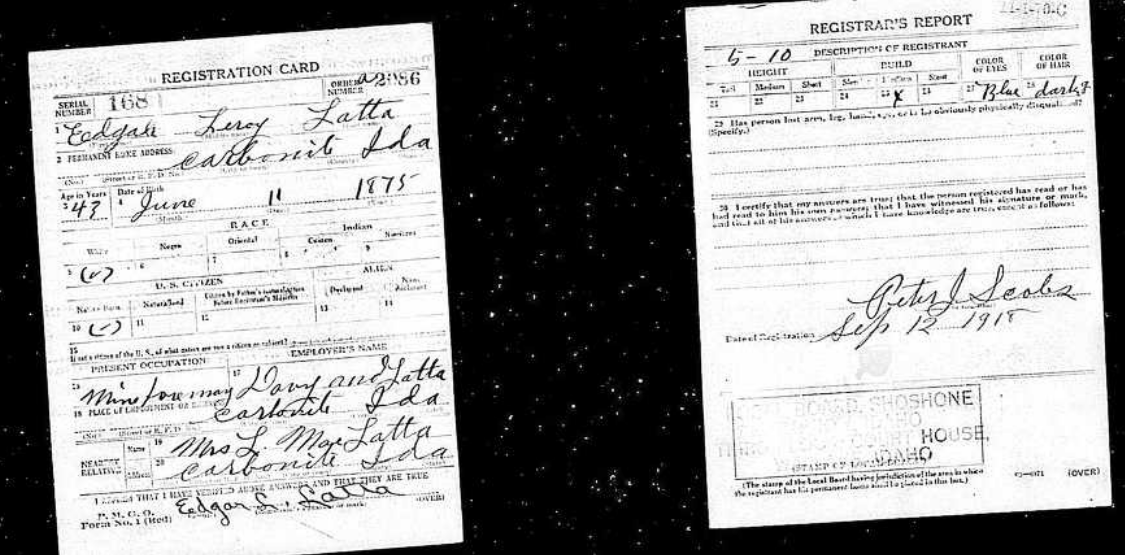 REGISTRATION CARD
SERIAL NUMBER 168
ORDER NUMBER a2986
1 Eedgar Leroy Latta
2 PERMANENT HOME ADDRESS: Carbonite Ida
(No.) (Street or R. F. D. No.)
Age in Years Date of Birth
3 43 4 June 11 1875
(Month) (Day) (Year)
RACE
White Negro Oriental Indian
Citizen Noncitizen
5 (✓) 6 7 8 9
U. S. CITIZEN ALIEN
Native Born Naturalized Citizen by Father's Naturalization Before Registrant's Majority Declarant Non-declarant
10 (✓) 11 12 13 14
15
If not a citizen of the U. S., of what nation are you a citizen or subject?
PRESENT OCCUPATION EMPLOYER'S NAME
16 Mine foreman 17 Davy and Latta
18 PLACE OF EMPLOYMENT OR BUSINESS: Carbonite Ida
(No.) (Street or R. F. D. No.)
NEAREST RELATIVE Name 19 Mrs L. Mae Latta
Address 20 Carbonite Ida
I AFFIRM THAT I HAVE VERIFIED ABOVE ANSWERS AND THAT THEY ARE TRUE
P. M. G. O.
Form No. 1 (Red) Eedgar L. Latta (OVER)
REGISTRAR'S REPORT
5-10 DESCRIPTION OF REGISTRANT
HEIGHT BUILD COLOR OF EYES COLOR OF HAIR
Tall Medium Short Slender Medium Stout
21 22 23 24 25 x 26 27 Blue 28 dark
29 Has person lost arm, leg, hand, eye, or is he obviously physically disqualified?
(Specify.)
30 I certify that my answers are true; that the person registered has read or has
had read to him his own answers; that I have witnessed his signature or mark,
and that all of his answers of which I have knowledge are true, except as follows:
Peter J
Date of Registration Sep 12 1918
LOCAL BOARD, SHOSHONE
IDAHO
COURT HOUSE,
IDAHO
(STAMP OF LOCAL BOARD)
(The stamp of the Local Board having jurisdiction of the area in which
the registrant has his permanent home shall be placed in this box.)
(OVER)